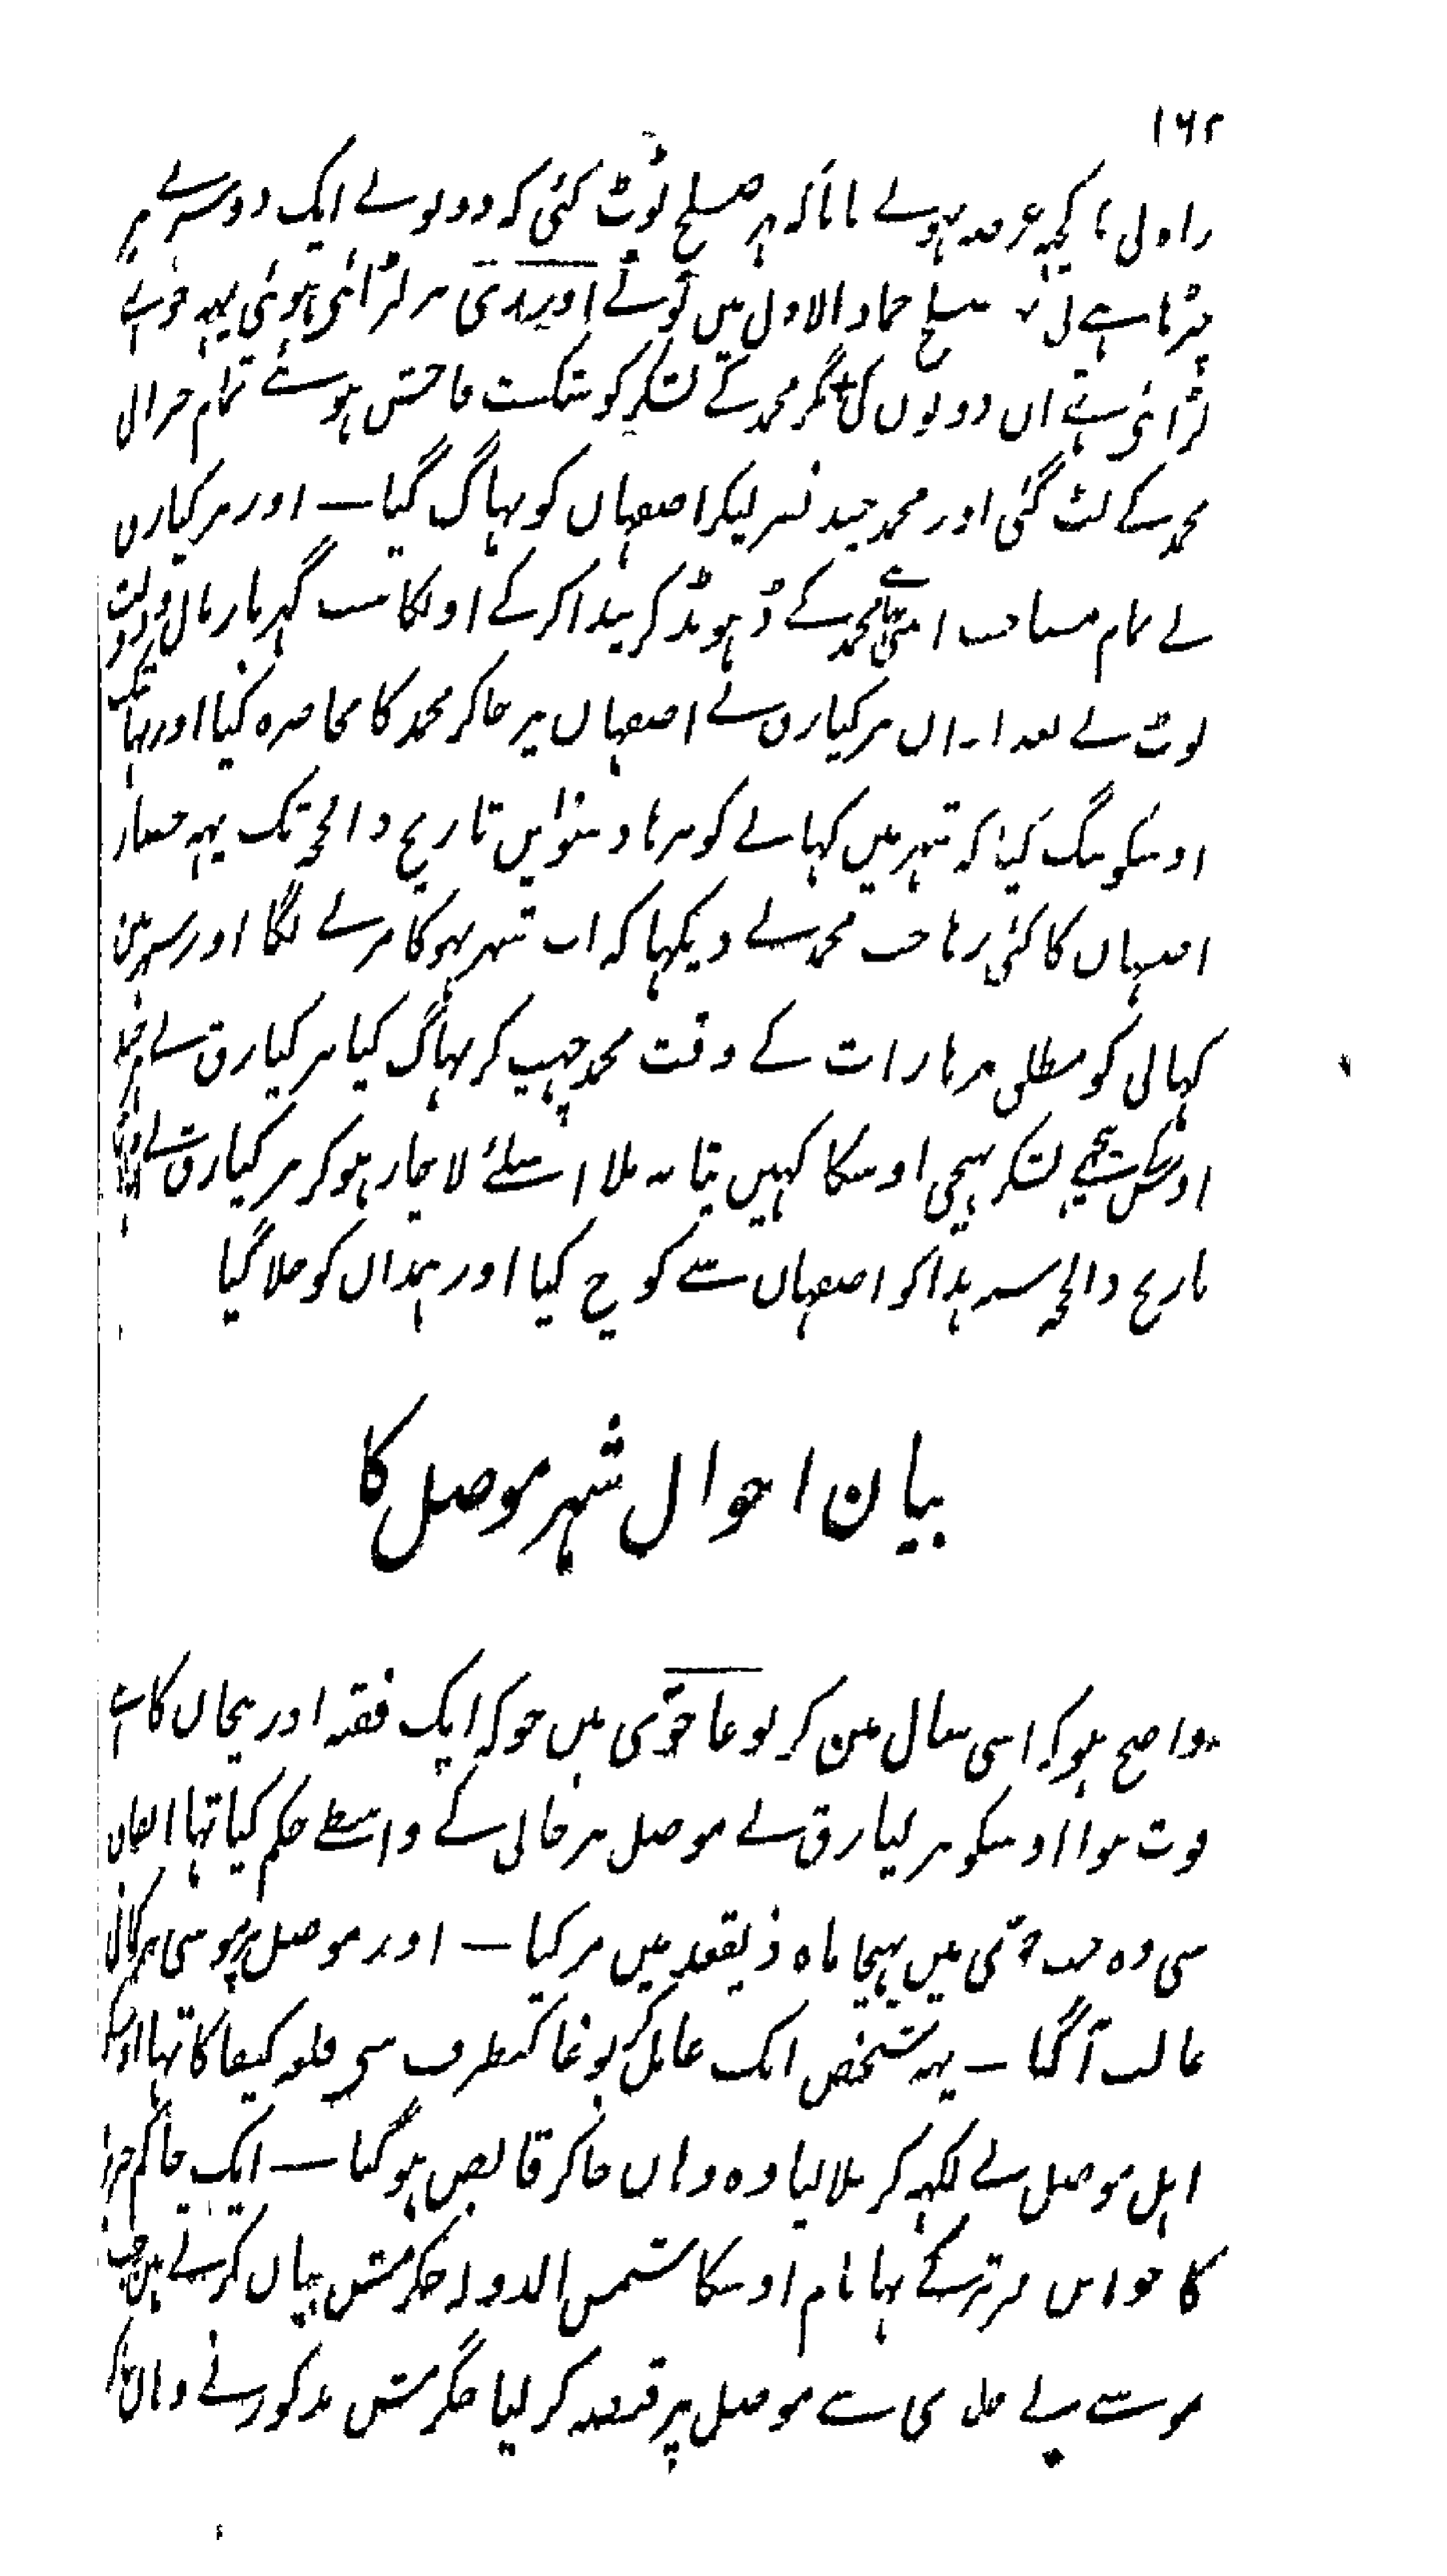 ۱۶۲
کچہ عرصہ ہونے نپایا کہ پر صلح ٹوٹ گئی کہ دونونے ایک دوسرے پر
صلح جماد الاول میں ٹوٹے اور ری پر لڑائی ہوئی یہہ چوتھے
لڑائی ہے ان دونوں کی مگر محمد کے لشکر کو شکست فاحش ہوئے تمام خزانی
محمد کے لٹ گئی اور محمد چند نفر لیکر اصفہان کو بہاگ گیا — اور برکیارق
نے تمام مصاحب محمد کے ڈہونڈ کر پیدا کر کے اونکا سب گہر بار مال و دولت
لوٹ لے بعد ازان برکیارق نے اصفہان پر جاکر محمد کا محاصرہ کیا اور یہانتک
اوسکو تنگ کیا کہ شہر میں کہانے کو نرہا دسوایں تاریخ ذالحجہ تک یہہ حصار
اصفہان کا کئی رہا جب محمد نے دیکہا کہ اب شہر بہوکا مرنے لگا اور شہر مین
کہانی کو مطلق نرہا رات کے وقت محمد چہپ کر بہاگ گیا برکیارق نے ہر چند
اوسکے پیچھے لشکر بہیجی اوسکا کہیں پتا نہ ملا اسلئے لاچار ہوکر برکیارق نے
تاریخ ذالحجہ سنہ ہذا کو اصفہان سے کوچ کیا اور ہمدان کو چلا گیا
بیان احوال شہر موصل کا
واضح ہو کہ اسی سال مین کربوغا خوی میں جو کہ ایک قصبہ اذربیجان کا ہے
فوت ہوا اوسکو برکیارق نے موصل پر جانی کے واسطے حکم کیا تہا اتفاق
سی وہ جب خوی میں پہیچا ماہ ذیقعد میں مر گیا — اور موصل پر موسی ترکمانی
غالب آ گیا — یہہ شخص ایک عامل کربوغا کیطرف سی قلعہ کیفا کا تہا اوسکو
اہل موصل نے لکہہ کر بلا لیا وہ وہاں جاکر قابض ہو گیا — ایک حاکم جزیرہ
کا جو ابن عمر کے تہا نام اوسکا شمس الدولہ جکرمش بیان کرتے ہیں جب
موسے نے جلدی سے موصل پر قبضہ کر لیا جکرمش مذکور نے وہان